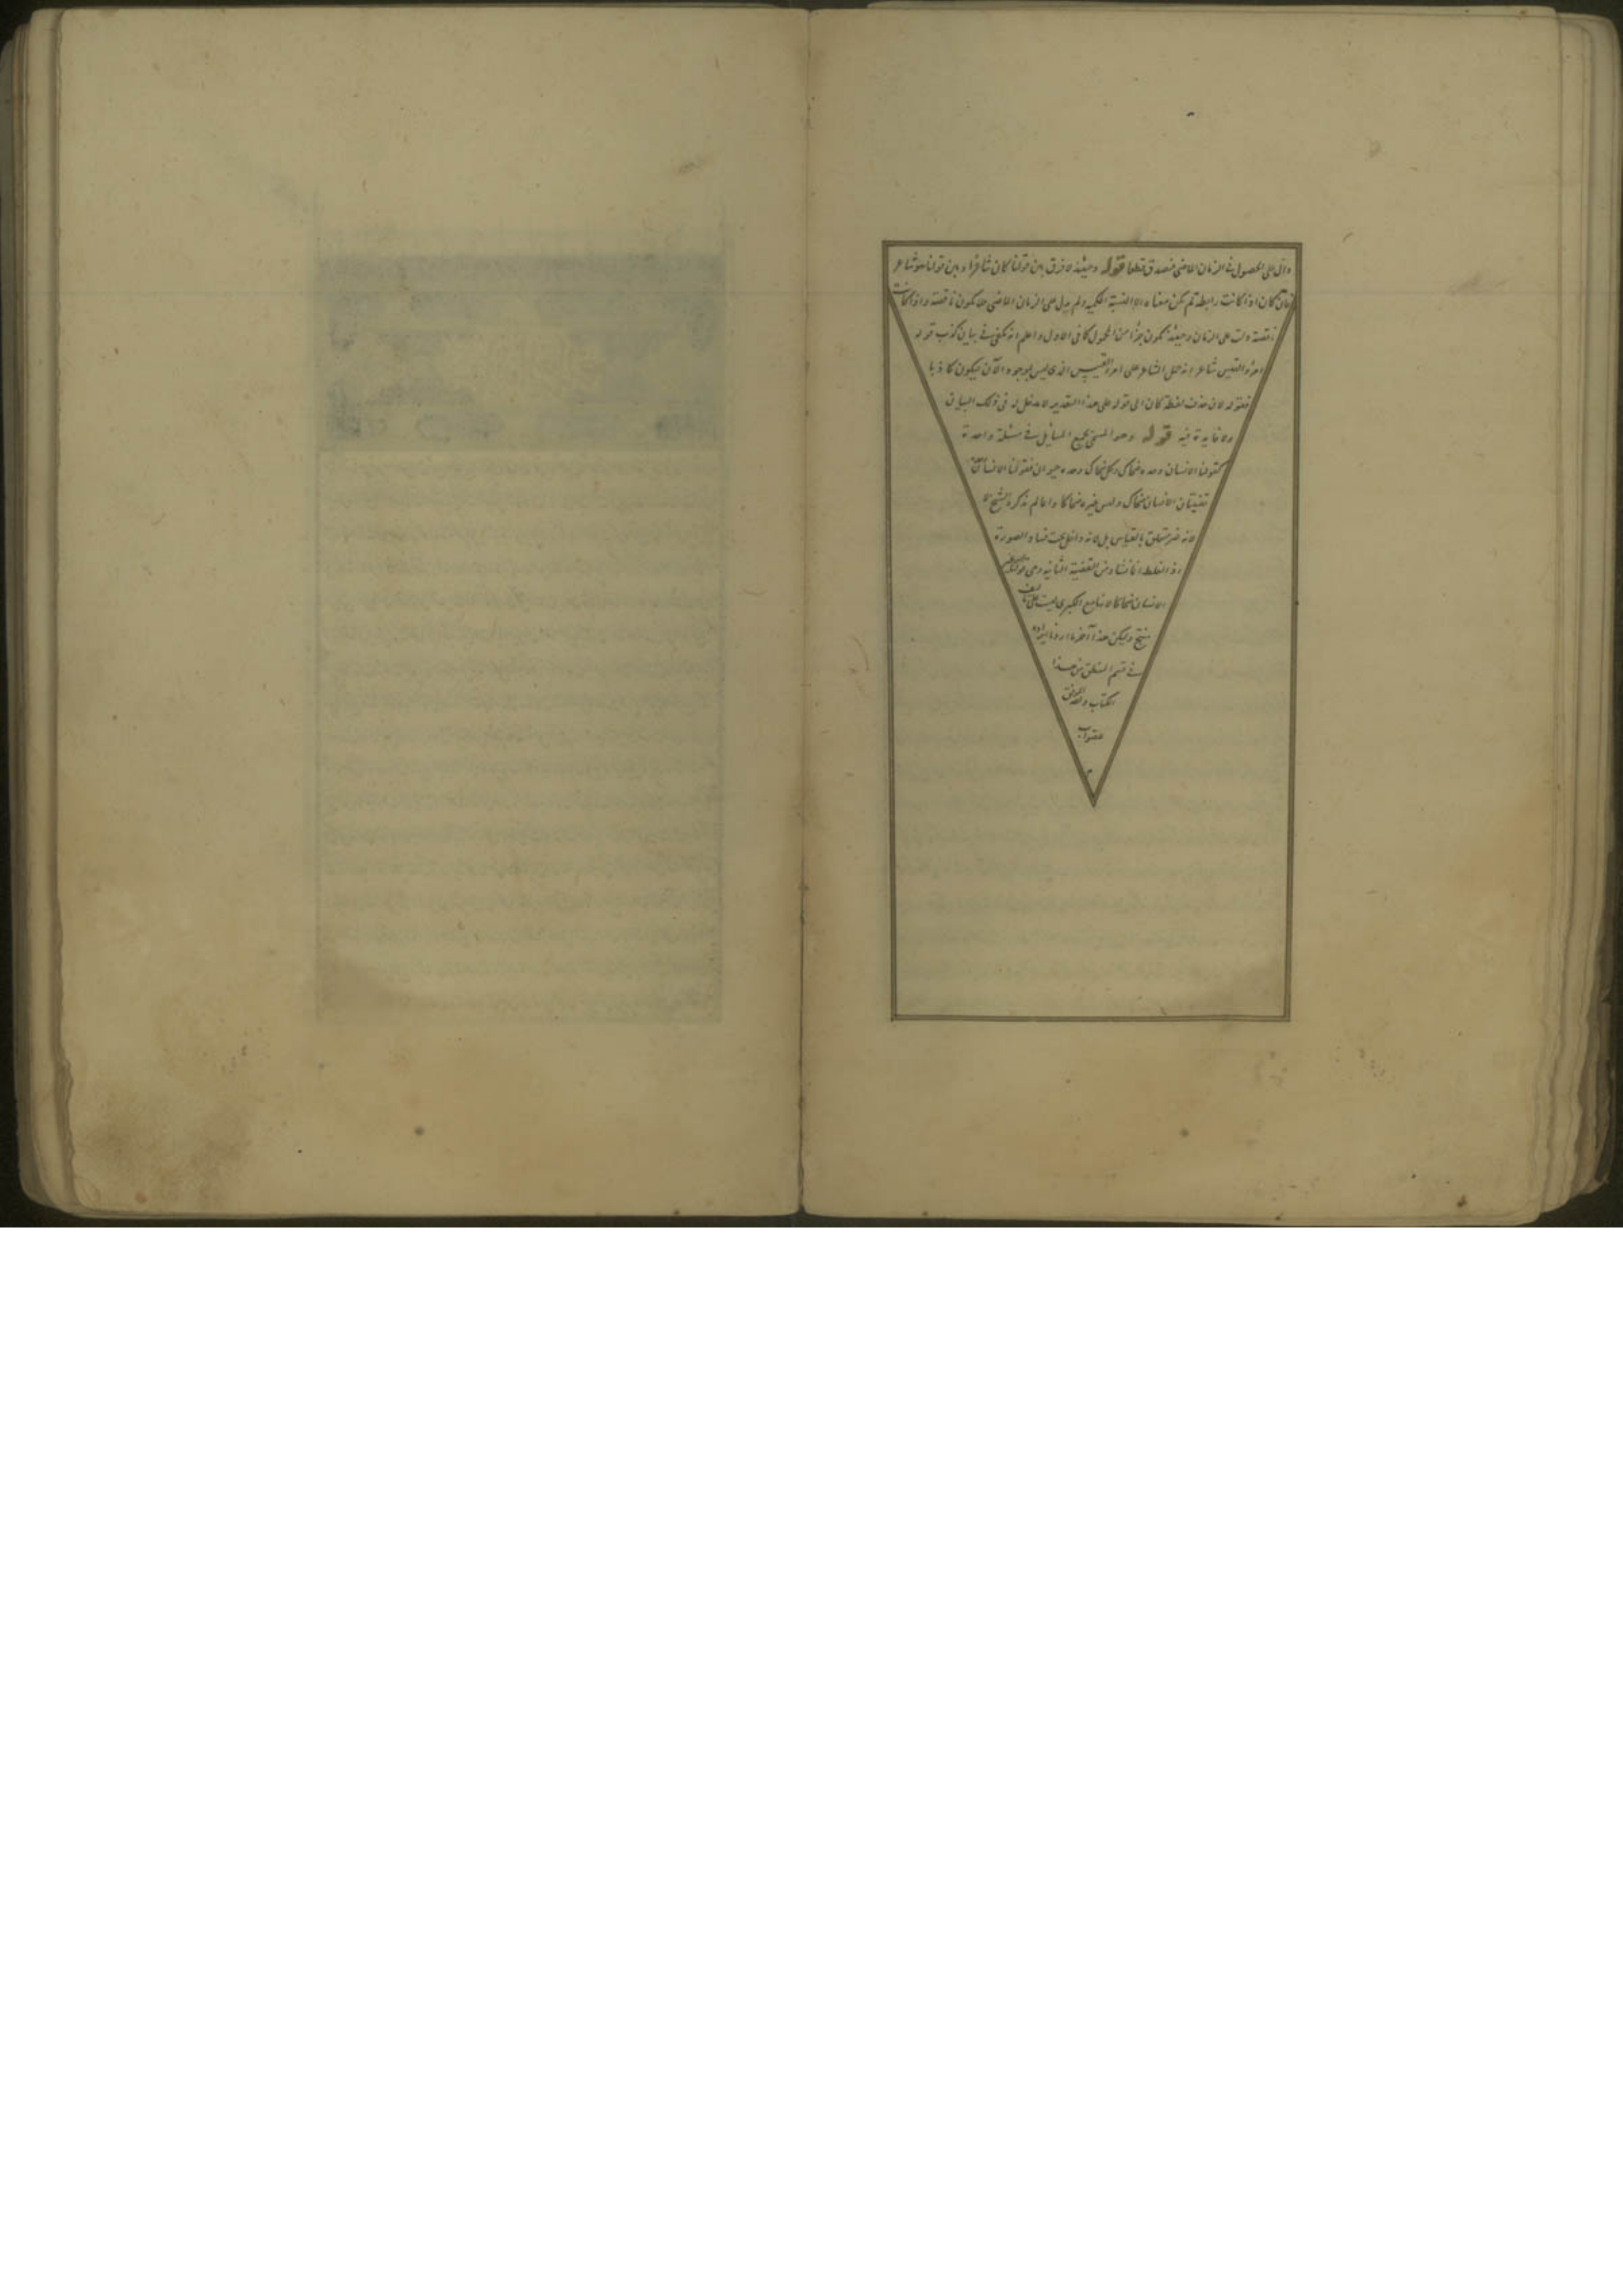 دال على الحصول في الزمان الماضي فيصدق قطعا قوله وحينئذ لا فرق بين قولنا كان شاعرا وبين قولنا هو شاعر
كان اذا كانت رابطة لم يكن معناه الا النسبة الحكمية ولم يدل على الزمان الماضي فلا يكون ناقصة واذا كانت
ناقصة دلت على الزمان وحينئذ يكون جزأ من المحمول كما في الاول واعلم انه يكفي في بيان كذب قوله
امرؤ القيس شاعر انه حمل الشاعر على امرؤ القيس الذي ليس بموجود الآن فيكون كاذبا
فقوله لان حذف لفظة كان الى قوله على هذا التقدير لا مدخل له في ذلك البيان
ولا فايدة فيه قوله وهو المسمى بجمع المسايل في مسئلة واحدة
كقولنا الانسان وحده ضحاك وكل ضحاك وحده حيوان فقولنا الانسان
قضيتان الانسان ضحاك وليس غيره ضحاكا وانما لم يذكره الشيخ لا
لانه غير متعلق بالقياس بل لانه داخل تحت فساد الصورة
اذ الغلط انما نشاء من القضية الثانية وهي قولنا ليس غير
الانسان ضحاكا لانها مع الكبرى ليست على تاليف
منتج وليكن هذا آخر ما اردنا ايراده
في قسم المنطق من هذا
الكتاب والله الموفق
للصواب
م